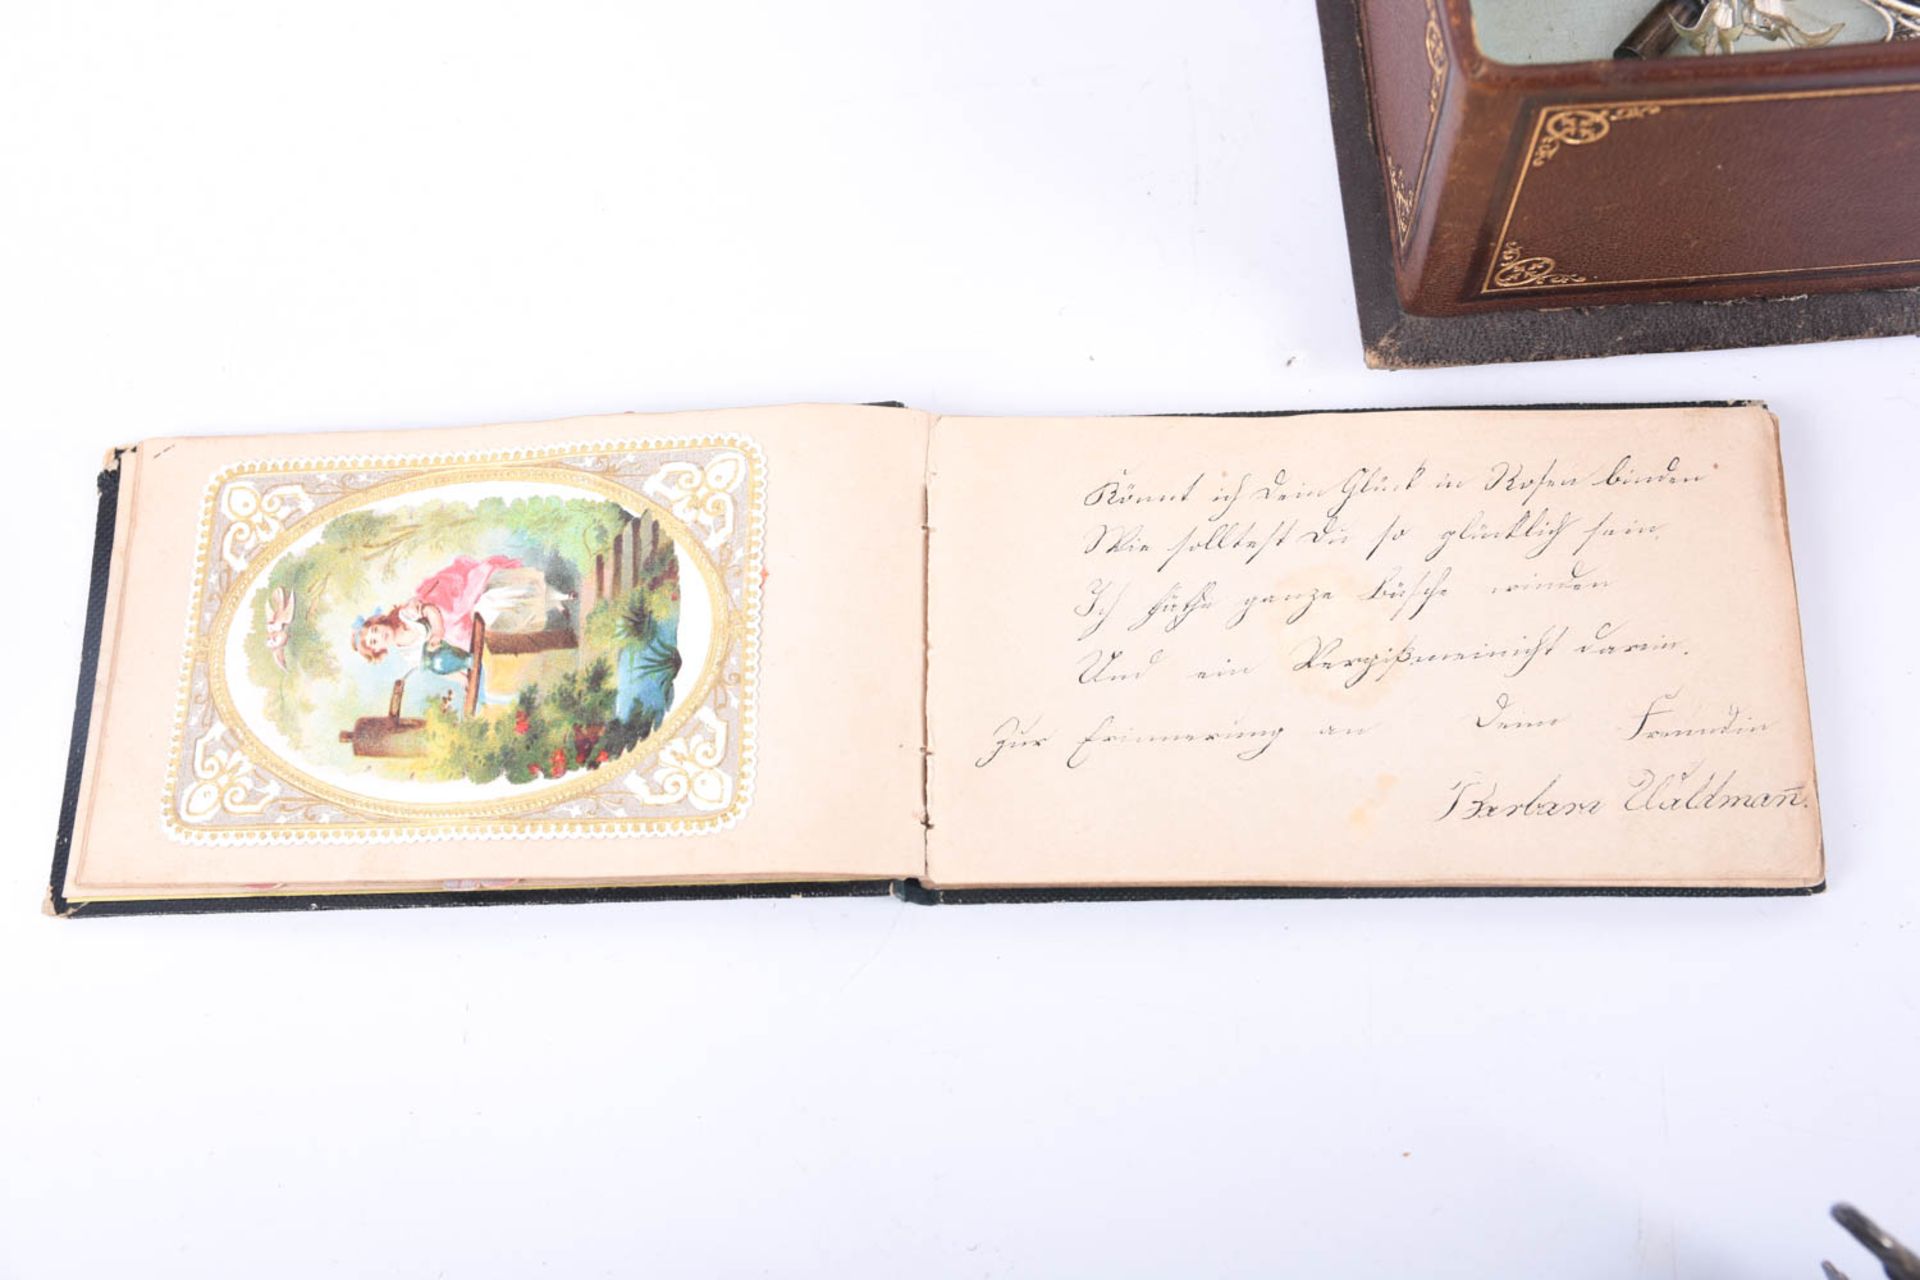 Könnt ich Dein Glück in Rosen binden
Wie solltest Du so glücklich sein.
Ich thäthe ganze Büsche winden
Und ein Vergißmeinicht darein.
Zur Erinnerung an Deine Freundin
Barbara Waldman̄.